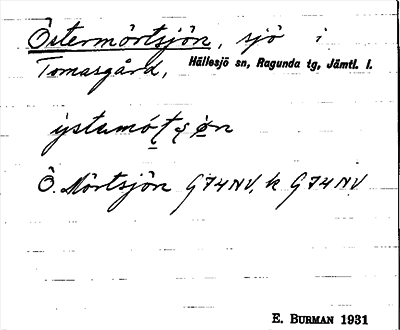 Östermörtsjön, sjö i
Tomasgård, Hällesjö sn, Ragunda tg, Jämtl. l.
Ö. Mörtsjön G74NV, k G74NV
E. BURMAN 1931